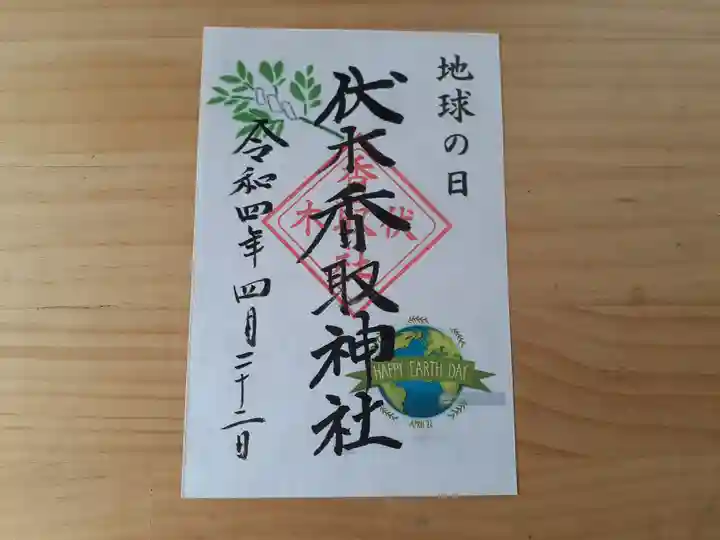 地球の日
伏木香取神社
令和四年 四月二十二日
香
木取伏
社
HAPPY EARTH DAY
APRIL 22